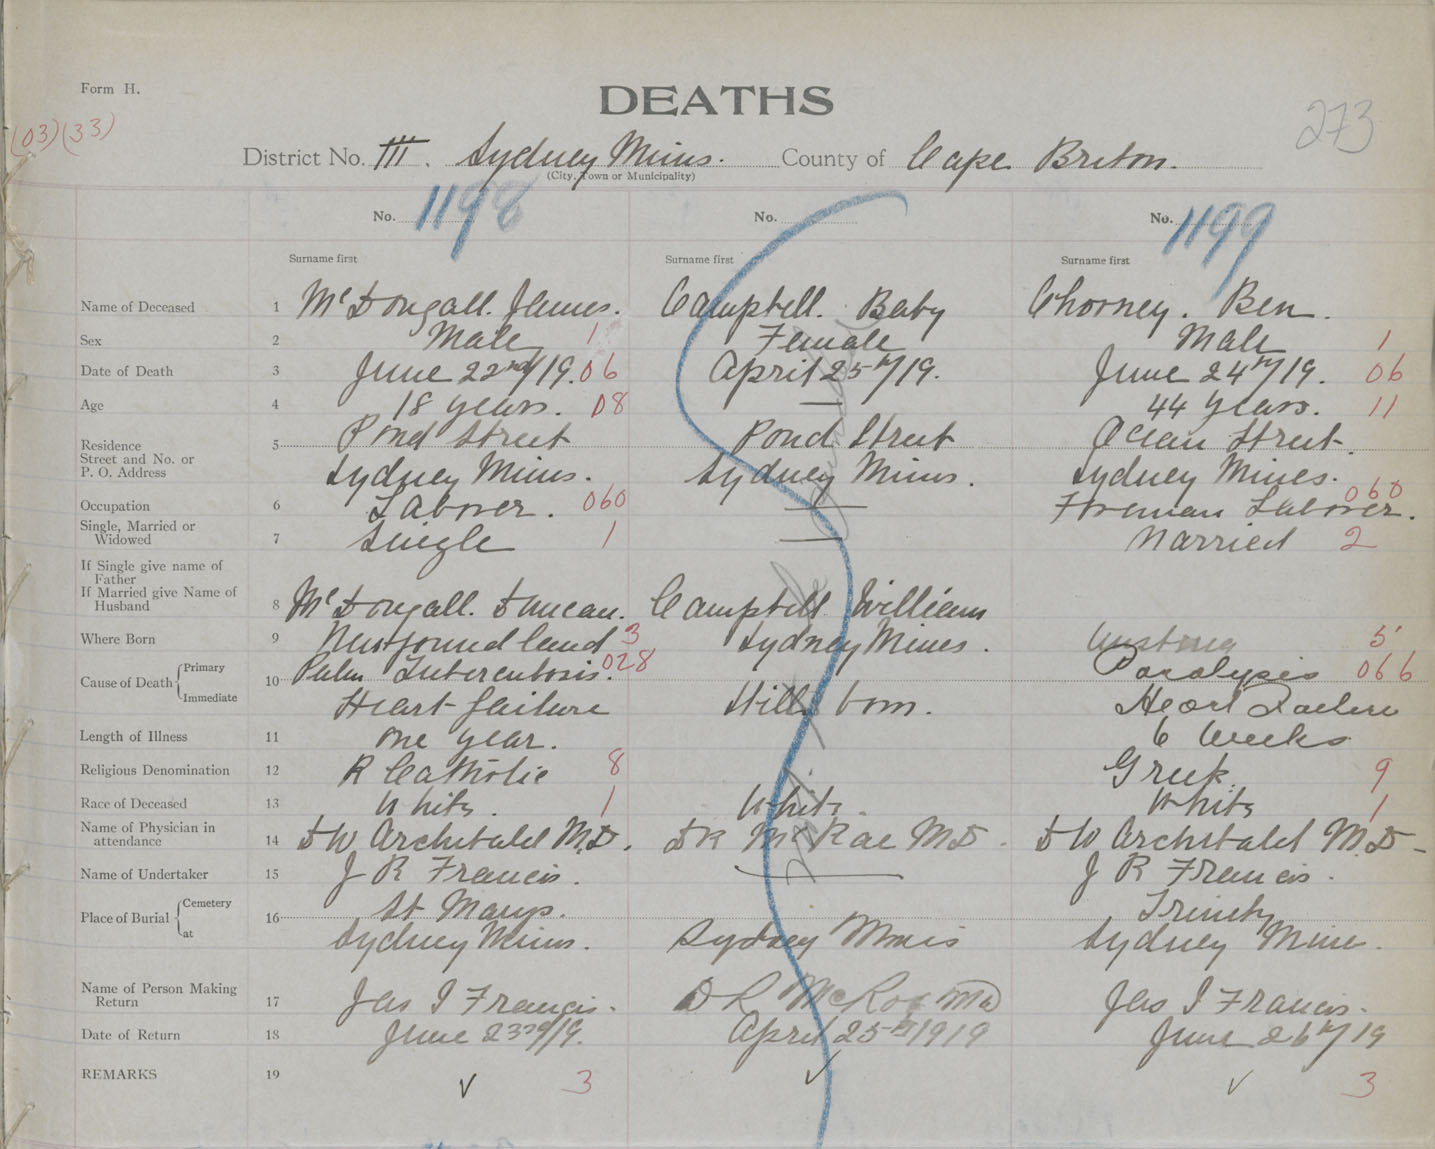 Form H.
DEATHS
273
(03)(33)
District No. III. Sydney Mines. County of Cape Breton.
(City, Town or Municipality)
No. 1198 No. No. 1199
Surname first Surname first Surname first
Name of Deceased 1 McDougall. James. Campbell. Baby Chorney. Ben.
Sex 2 Male 1 Female Male 1
Date of Death 3 June 22nd/19. 06 April 25th/19. June 24th/19. 06
Age 4 18 years. 08 — 44 years. 11
Residence
Street and No. or
P. O. Address
5 Pond Street Pond Street Ocean Street.
Sydney Mines. Sydney Mines. Sydney Mines.
Occupation 6 Laborer. 060 — Foreman Laborer. 060
Single, Married or
Widowed
7 Single 1 — Married 2
If Single give name of
Father
If Married give Name of
Husband
8 McDougall. Duncan. Campbell William
Where Born 9 Newfoundland 3 Sydney Mines. Austria 5
Cause of Death { Primary
Immediate
10 Pulm Tuberculosis. 028 Paralysis 066
Heart failure Still born. Heart Failure
Length of Illness 11 one year. 6 Weeks
Religious Denomination 12 R Catholic 8 Greek. 9
Race of Deceased 13 White. 1 White. White 1
Name of Physician in
attendance
14 D W Archibald M.D. D R McRae MD. D W Archibald M.D.
Name of Undertaker 15 J R Francis. — J R Francis.
Place of Burial { Cemetery
at
16 St Marys. Trinity
Sydney Mines. Sydney Mines Sydney Mines.
Name of Person Making
Return
17 Jas I Francis. D R McRae MD Jas I Francis.
Date of Return 18 June 23rd/19. April 25th/1919 June 26th/19
REMARKS 19 ✓ 3 ✓ ✓ 3